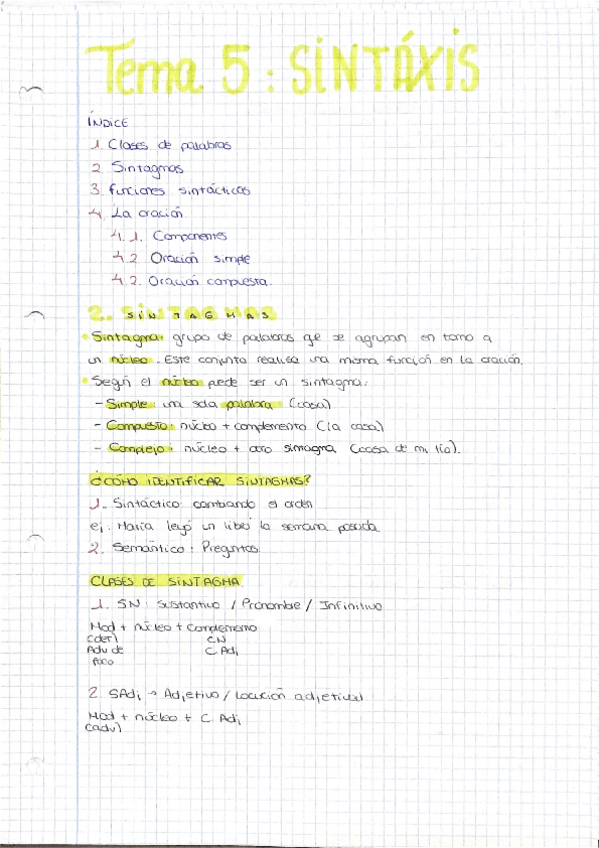 Tema 5: SINTÁXIS
ÍNDICE
1. Clases de palabras
2. Sintagmas
3. Funciones sintácticas
4. La oración
4.1. Componentes
4.2 Oración simple
4.2. Oración compuesta.
2. SINTAGMAS
Sintagma: grupo de palabras qe se agrupan en torno a
un núcleo. Este conjunto realisa una misma función en la oración.
Según el núcleo pede ser un sintagma:
- Simple: una sola palabra (casa)
- Compuesto: núcleo + complemento (la casa)
- Complejo: núcleo + otro sintagma (casa de mi tío).
¿CÓMO IDENTIFICAR SINTAGMAS?
1. Sintáctico: cambiando el orden
ej: María leyó un libro la semana pasada
2. Semántico: Preguntas
CLASES DE SINTAGMA
1. SN: Sustantivo / Pronombre / Infinitivo
Mod + núcleo + Complemento
(det) CN
Adv de C. Adj
foco
2. SAdj → Adjetivo / Locución adjetival
Mod + núcleo + C. Adj
(adv)